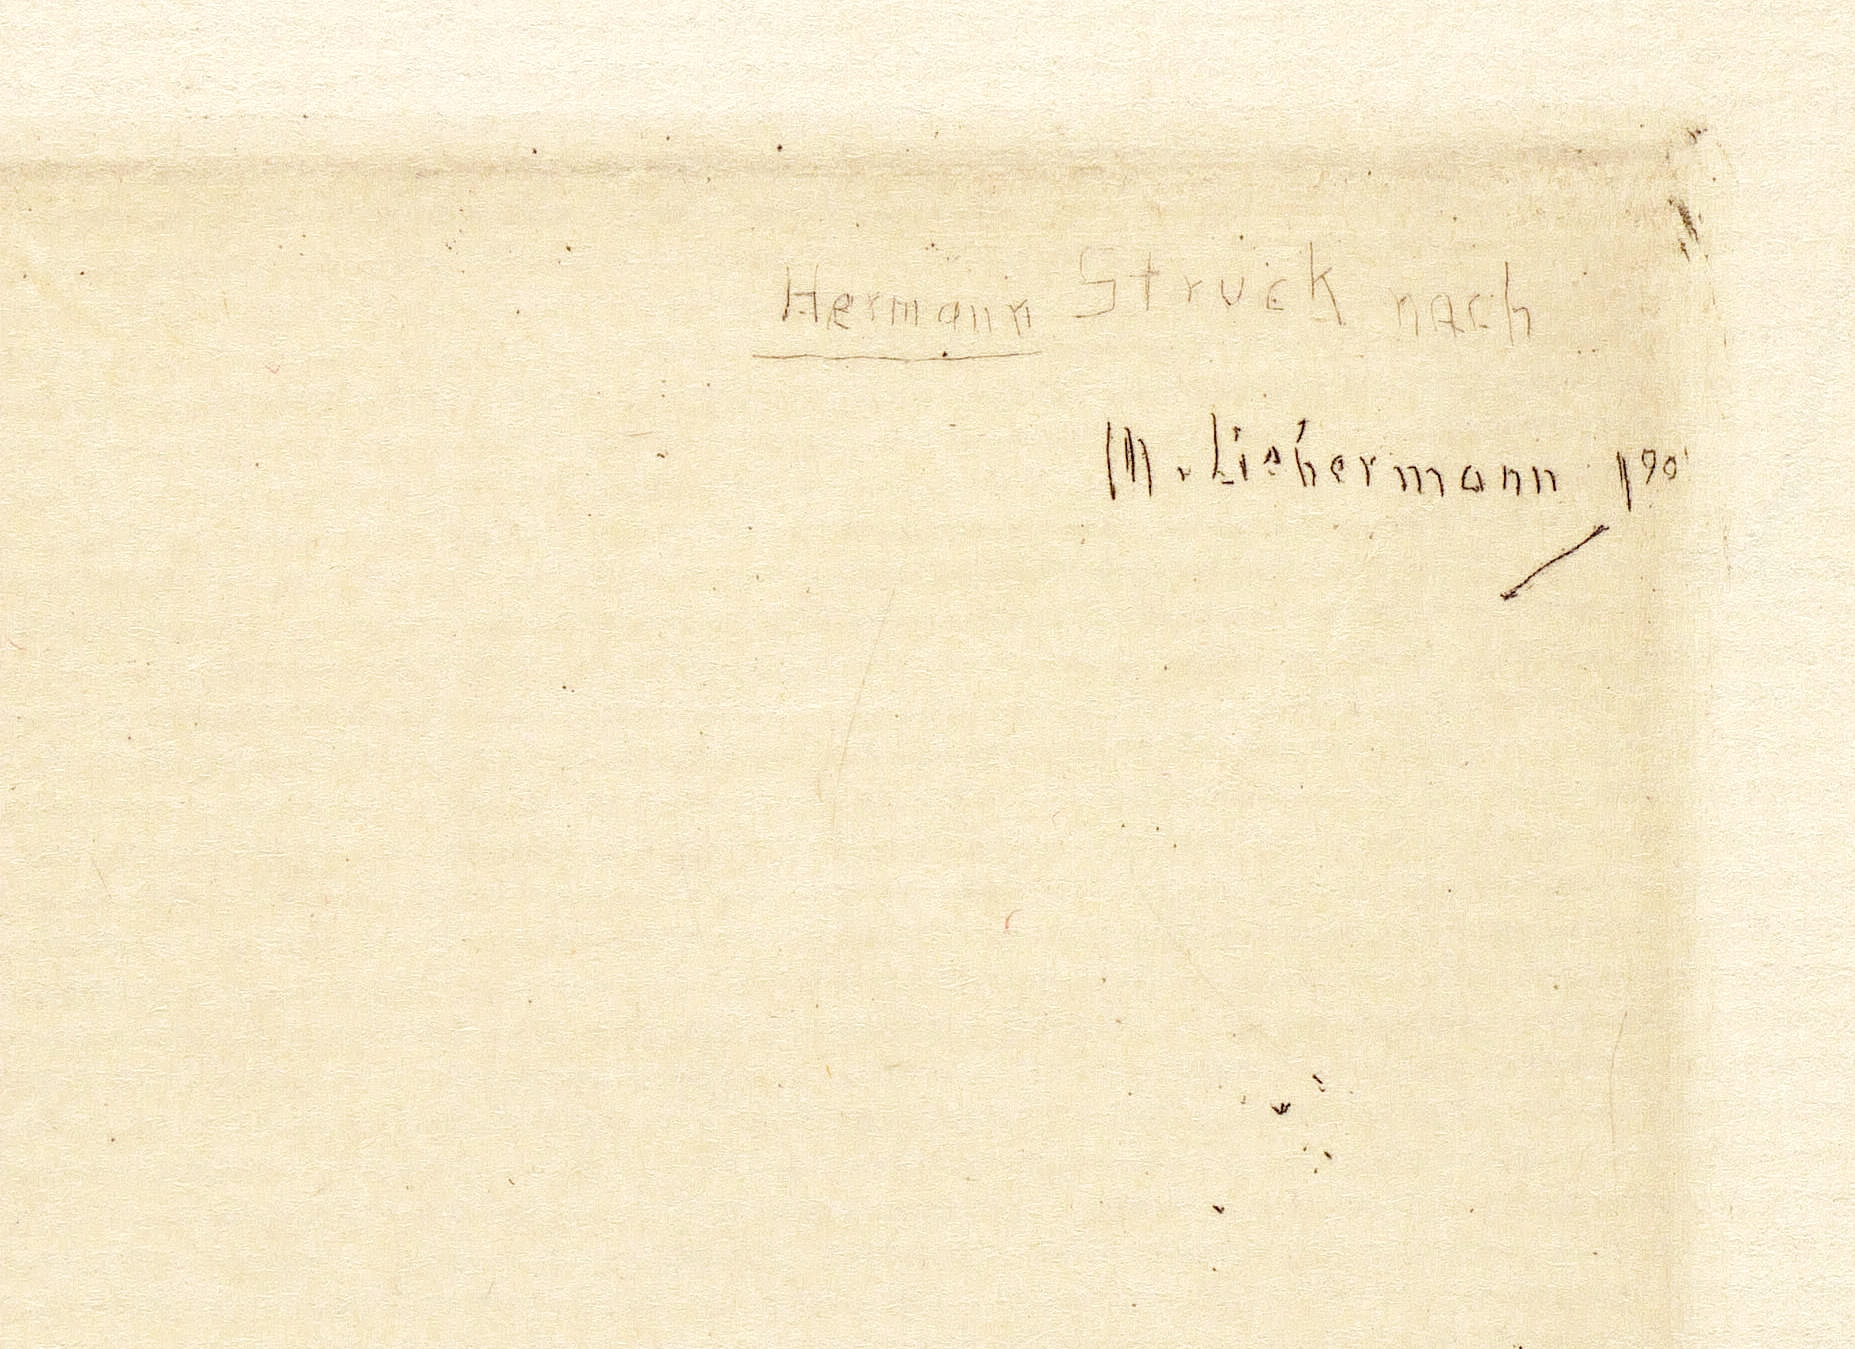 Hermann Struck nach
M. Liebermann 190